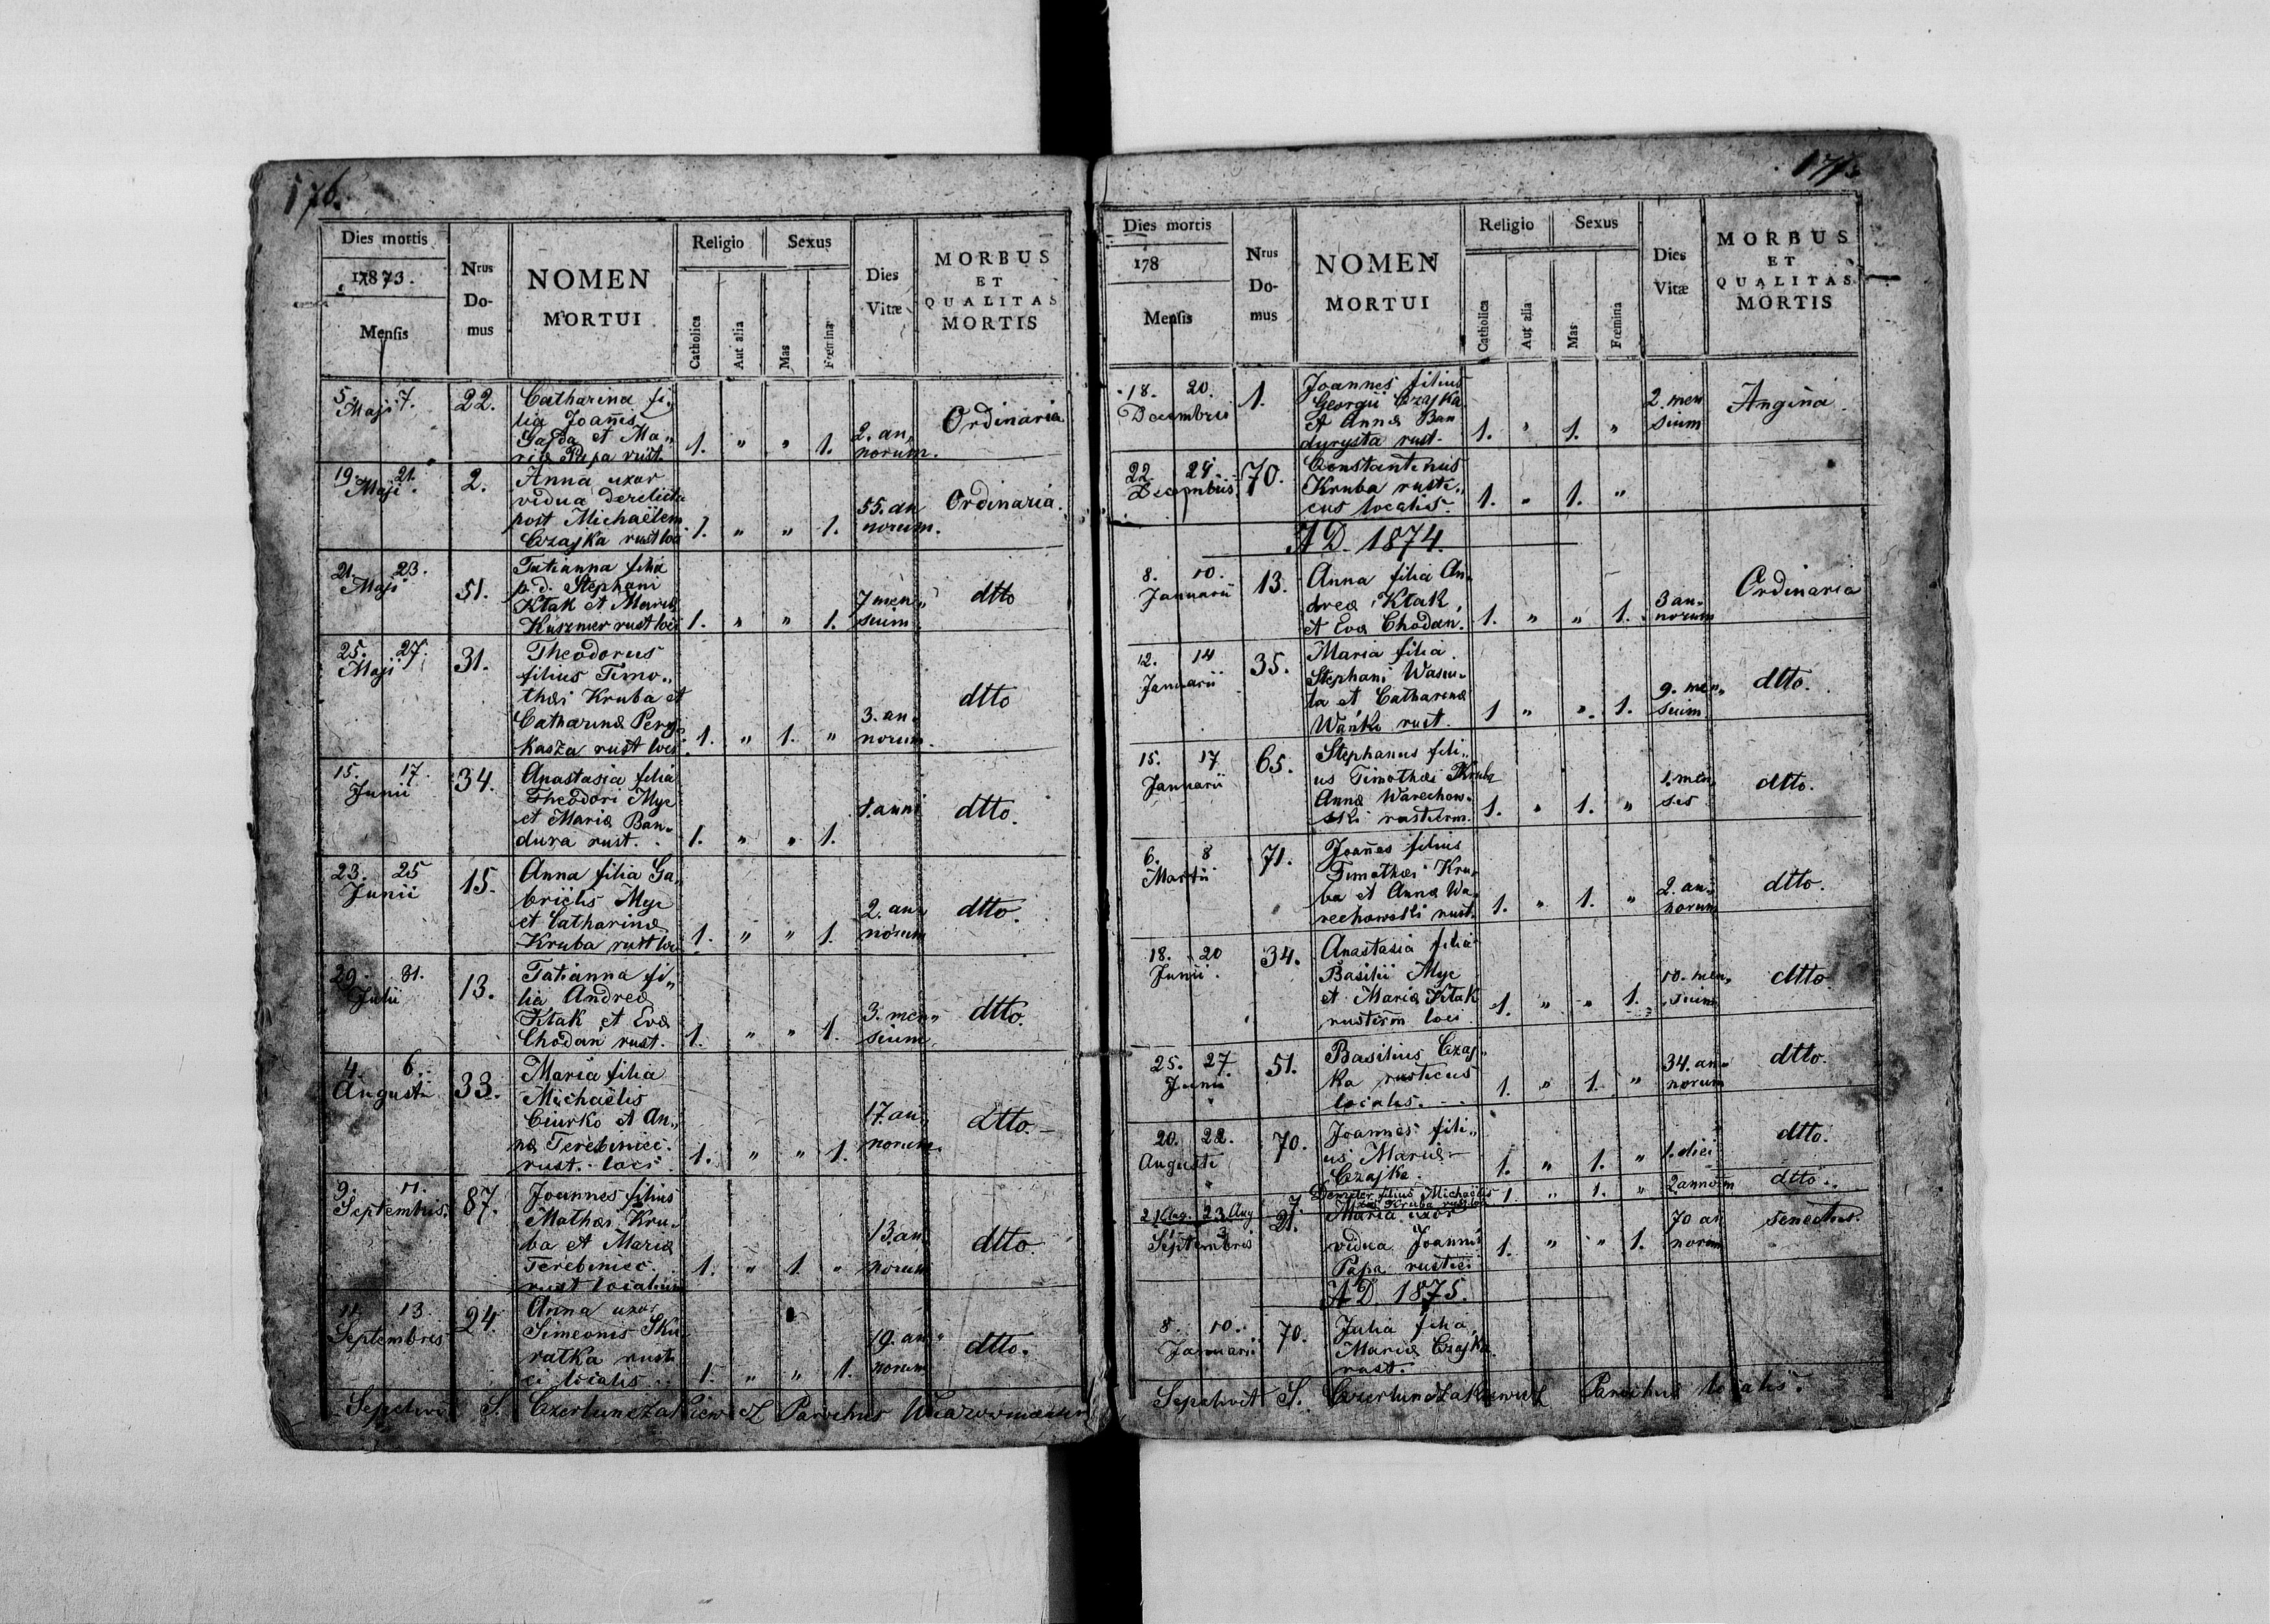 176.
Dies mortis
Nrus Domus
NOMEN MORTUI
Religio
Sexus
Dies Vitæ
MORBUS ET QUALITAS MORTIS
1873.
Mensis
Catholica
Aut alia
Mas
Fœmina
5. 7. Maji 22.
Catharina fi„
lia Joañis
Gajda et Ma„
ria Papa rust. 1. „ „ 1. 2. an„
norum.
Ordinaria
19. 21. Maji 2.
Anna uxor
vidua derelicta
post Michaëlem
Czajka rust loci 1. „ „ 1. 55. an
norum.
Ordinaria.
21. 23. Maji 51.
Tatianna filia
p. d. Stephani
Ktak et Mariæ
Kuszmer rust loci 1. „ „ 1. 7 men„
sium.
dtto
25. 27. Maji 31.
Theodorus
filius Timo„
thæi Kruba et
Catharinæ Pery„
kasza rust loci. 1. „ 1. „ 3. an„
norum.
dtto
15. 17. Junii 34.
Anastasia filia
Theodori Myc
et Mariæ Ban„
dura rust. 1. „ „ 1. 1. anni
dtto.
23. 25 Junii 15.
Anna filia Ga„
brielis Myc
et Catharinæ
Kruba rust loci 1. „ „ 1. 2. an„
norum
dtto.
29. 31. Julii 13.
Tatianna fi„
lia Andreæ
Ktak et Evæ
Chodan rust. 1. „ „ 1. 3. men„
sium.
dtto.
4. 6. Augusti 33.
Maria filia
Michaëlis
Ciurko et An„
næ Terebiniec.
rust. loci. 1. „ „ 1. 17. an„
norum.
dtto.
9. 11. Septembris. 87.
Joannes filius
Mathæi Kru„
ba et Mariæ
Terebiniec.
rust localium 1. „ 1. „ 13. an„
norum
dtto.
11. 13. Septembris 24.
Anna uxor
Simeonis Sku
ratka rusti
ci localis. 1. „ „ 1. 19. an„
norum
dtto.
Sepelivit S. Czerlunczakiewicz Parochus
177.
Dies mortis
Nrus Domus
NOMEN MORTUI
Religio
Sexus
Dies Vitæ
MORBUS ET QUALITAS MORTIS
178
Mensis
Catholica
Aut alia
Mas
Fœmina
18. 20. Decembris 1.
Joannes filius
Georgii Czajka
et Annæ Ban
dyrysta rust. 1. „ 1. „ 2. men
sium
Angina.
22. 24. Decembris 70.
Constantinus
Kruba rusti„
cus localis. 1. „ 1. „
A D. 1874.
8. 10. Januarii 13.
Anna filia An„
dreæ Ktak,
et Evæ Chodan. 1. „ „ 1. 3 an„
norum
Ordinaria
12. 14 Januarii 35.
Maria filia
Stephani Wasiu„
ta et Catharinæ
Wańko rust. 1 „ „ 1. 9. men„
sium
dtto.
15. 17 Januarii 65.
Stephanus fili„
us Timothæi Kruba
Annæ Warechow„
ski rusticrm. 1. „ 1. „ 1. men„
sis
dtto.
6. 8 Martii 71.
Joañes filius
Timothæi Kru„
ba et Annæ Wa„
rechowski rust. 1. „ 1. „ 2. an„
norum
dtto.
18. 20 Junii. 34.
Anastasia filia
Basilii Myc
et Mariæ Ktak
rusticrm loci 1. „ „ 1. 10. men„
sium
dtto.
25. 27. Junii 51.
Basilius Czaj„
ka rusticus
localis. 1. „ 1. „ 34. an„
norum
dtto.
20. 22. Augusti 70.
Joannes fili„
us Mariæ
Czajka. 1. „ 1. „ 1. diei
dtto.
21 Aug. 23 Aug 7.
Demeter filius Michaëlis
Kruba rust loci 1. „ 1. „ 2 annom
dtto.
1 3. Septembris 21.
Maria uxor
vidua Joannis
Papa rustici 1. „ „ 1. 70 an
norum
senectus.
A D. 1875.
8. 10. Januarii 70.
Julia filia
Mariæ Czajka
rust.
Sepelivit S. Czerlunczakiewicz Parochus localis.